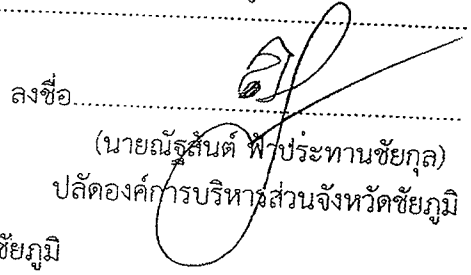 ลงชื่อ
(นายณัฐสันต์ ฟ้าประทานชัยกุล)
ปลัดองค์การบริหารส่วนจังหวัดชัยภูมิ
ชัยภูมิ